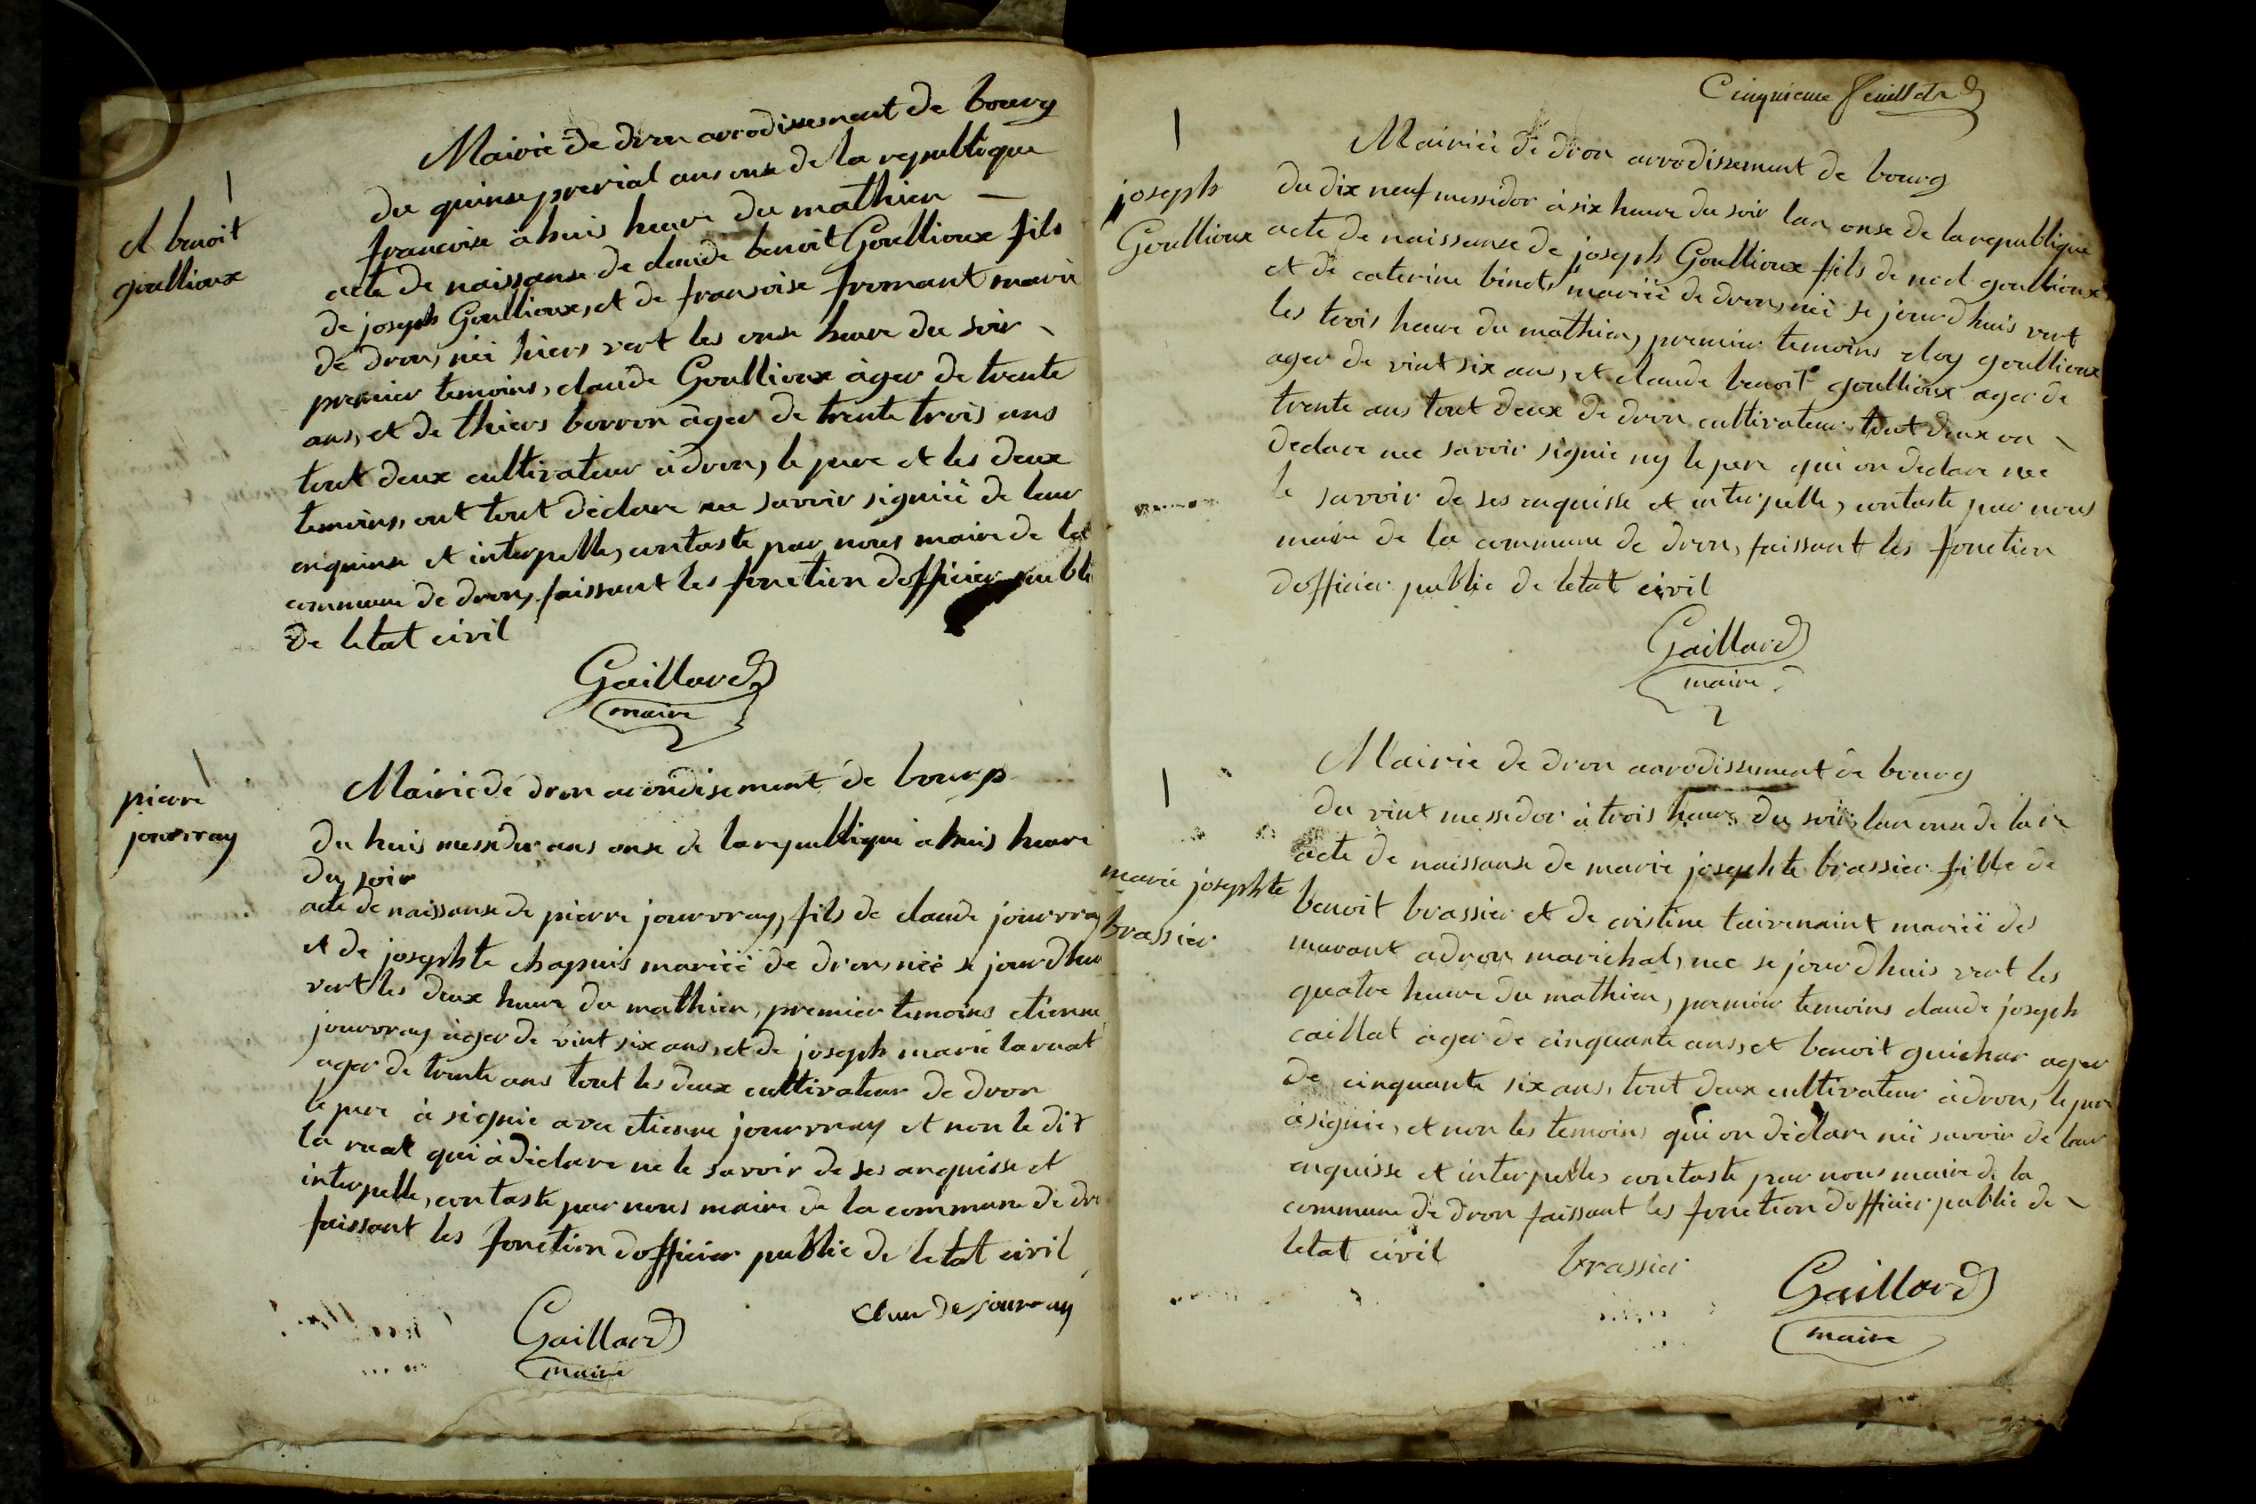 Mairie de dron arrodissement de bourg
du quinse prerial ans onse de la republique
francoise a huis heure du mathien
cl benoit
goullioux
acte de naissanse de claude benoit Goullioux fils
de joseph Goullioux, et de fransoise fromant mariè
de dron, nèè hiers vert les onse heure du soir
premier temoins, claude Goullioux àger de trente
ans, et de thiers borron àger de trente trois ans
tout deux cultivateur à dron, le pere et les deux
temoins, ont tout dèclare ne savoir signièè de leur
enquise et interpelle, contaste par nous maire de la
commune de dron, faissant les fonction dofficier publi
de letat civil
Gaillard
maire
pierre
jourvray
Mairie de dron arrondisement de bourg
du huis messidor ans onse de la republique a huis heure
du soir
acte de naissanse de pierre jourvray, fils de claude jourvray
et de josephte chapuis marièè de dron, nèè se jourdhui
vert les deux heure du mathien, premier temoins etienne
jourvray àger de vint six ans, et de joseph marie laruat
ager de trente ans tout les deux cultivateur de dron
le pere à signiè avec etienne jourvray et non le dit
la ruat qui à dèclare ne le savoir de ses anquisse et
interpelle, contaste par nous maire de la commune de dro
faissant les fonction dofficier public de letat civil
Gaillard
maire
claude jourvray
Cinquieme feuillet
joseph
Goullioux
Mairièè de dron arrodissement de bourg
du dix neuf messidor à six heure du soir lan onse de la republique
acte de naissanse de joseph Goullioux fils de noel goullioux
et de caterine binet, marièè de dron, nèè se jourdhuis vert
les trois heure du mathien, premier temoins eloy goullioux
ager de vint six ans, et claude benoit goullioux ager de
trente ans tout deux de dron cultivateur tout deux on
declare nee savoir signie ny le pere qui on declare nee
le savoir de ses enquisse et interpelle, contaste par nous
maire de la commune de dron, faissant les fonction
dofficier public de letat civil
Gaillard
maire
marie josephte
brassier
Mairie de dron aarodissement de bourg
du vint messidor à trois heure du soir, lan onse de la r
acte de naissanse de marie josephte brassier fille de
benoit brassier et de cristine tairenaint marièè des
murant a dron marichal, nee se jourdhuis vert les
quatre heure du mathien, premier temoins claude joseph
caillat àger de cinquante ans, et benoit guichar ager
de cinquante six ans, tout deux cultivateur à dron, le pere
à signie, et non les temoins qui on dèclare nèè savoir de leur
enquisse et interpelle, contaste par nous maire de la
commune de dron faissant les fonction dofficier public de
letat civil
brassier
Gaillard
maire